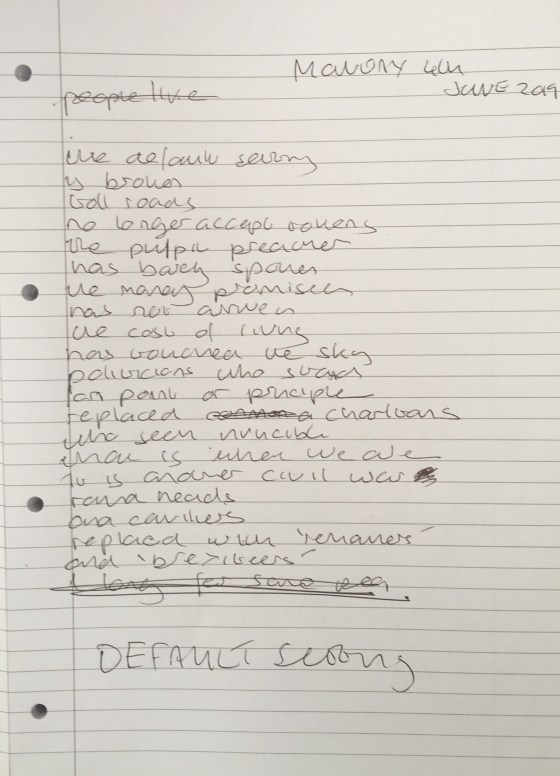 MONDAY 4th
JUNE 2019
people live
the default setting
is broken
toll roads
no longer accept tokens
the pulpit preacher
has barely spoken
the money promised
has not arrived
the cost of living
has touched the sky
politicians who stand
on point of principle
replaced charlatans
who seem invincible
what is when we are
it is another civil war
round heads
and cavaliers
replaced with 'remainers'
and 'brexiteers'
I long for some
DEFAULT setting